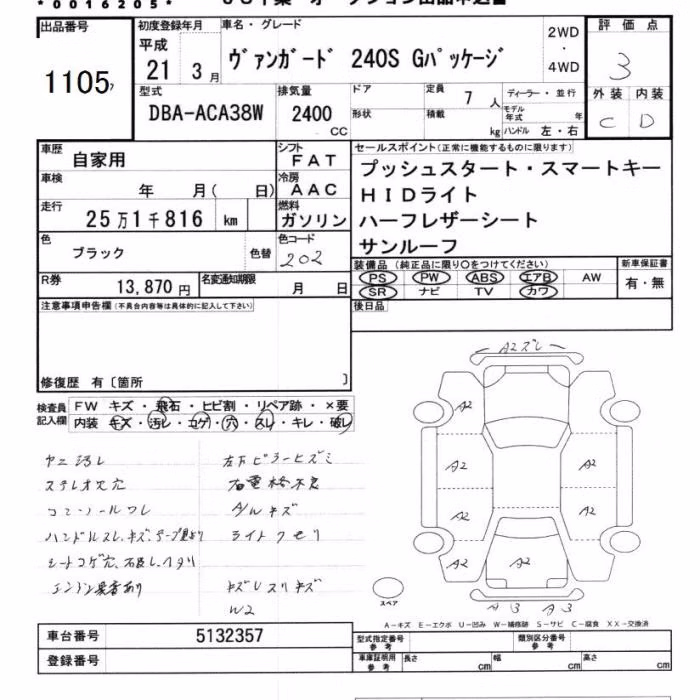 *0016205*
出品番号
1105
初度登録年月
平成
21 3月
車名・グレード
ヴァンガード 240S Gパッケージ
2WD
・
4WD
評価点
3
外装 内装
C D
型式
DBA-ACA38W
排気量
2400
CC
ドア
形状
定員
7人
積載
kg
ディーラー・並行
モデル年式 年
ハンドル 左・右
車歴
自家用
シフト
FAT
車検
年 月( 日)
冷房
AAC
走行
25万1千816 km
燃料
ガソリン
色
ブラック
色替
色コード
202
R券
13,870円
名変通知期限
月 日
セールスポイント(正常に機能するものに限ります)
プッシュスタート・スマートキー
HIDライト
ハーフレザーシート
サンルーフ
装備品(純正品に限り○をつけてください)
PS PW ABS エアB AW
SR ナビ TV カワ
新車保証書
有・無
後日品
注意事項申告欄(不具合内容等は具体的に記入して下さい)
修復歴 有〔箇所 〕
検査員記入欄
FW キズ・飛石・ヒビ割・リペア跡・×要
内装 キズ・汚レ・コゲ・穴・スレ・キレ・破レ
ヤニ汚レ
ステレオ欠穴
左下ピラーヒズミ
右電格不良
A/Wキズ
ライトクモリ
キズレスリキズ
W2
A2ズレ
A2
A2
A2
A2
A2
A2
A3 A3
スペア
A-キズ E-エクボ U-凹み W-補修跡 S-サビ C-腐食 XX-交換済
車台番号
5132357
登録番号
型式指定番号
参考
類別区分番号
参考
車庫証明用
参考
長さ cm
幅 cm
高さ cm